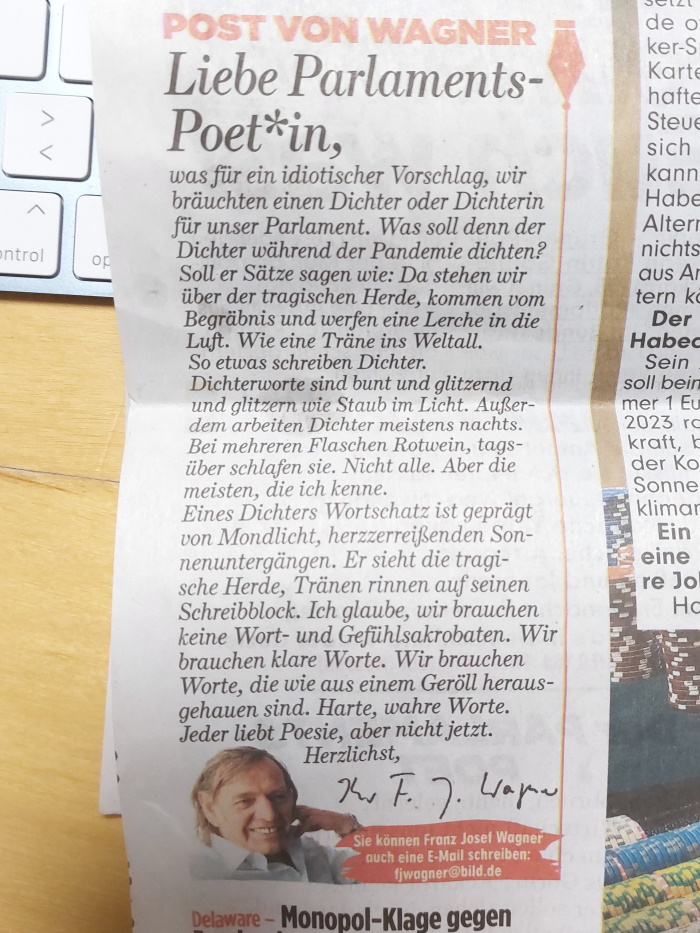 POST VON WAGNER
Liebe Parlaments-
Poet*in,
was für ein idiotischer Vorschlag, wir
bräuchten einen Dichter oder Dichterin
für unser Parlament. Was soll denn der
Dichter während der Pandemie dichten?
Soll er Sätze sagen wie: Da stehen wir
über der tragischen Herde, kommen vom
Begräbnis und werfen eine Lerche in die
Luft. Wie eine Träne ins Weltall.
So etwas schreiben Dichter.
Dichterworte sind bunt und glitzernd
und glitzern wie Staub im Licht. Außer-
dem arbeiten Dichter meistens nachts.
Bei mehreren Flaschen Rotwein, tags-
über schlafen sie. Nicht alle. Aber die
meisten, die ich kenne.
Eines Dichters Wortschatz ist geprägt
von Mondlicht, herzzerreißenden Son-
nenuntergängen. Er sieht die tragi-
sche Herde, Tränen rinnen auf seinen
Schreibblock. Ich glaube, wir brauchen
keine Wort- und Gefühlsakrobaten. Wir
brauchen klare Worte. Wir brauchen
Worte, die wie aus einem Geröll heraus-
gehauen sind. Harte, wahre Worte.
Jeder liebt Poesie, aber nicht jetzt.
Herzlichst,
Ihr F. J. Wagner
Sie können Franz Josef Wagner
auch eine E-Mail schreiben:
fjwagner@bild.de
Delaware – Monopol-Klage gegen
de o
ker-S
Karte
hafte
Steue
sich
kann
Habe
Altern
nichts
aus Ar
tern kö
Der
Habec
Sein
soll bein
mer 1 Eu
2023 ro
kraft, b
der Ko
Sonne
klimar
Ein
eine
re Jo
Ha
>
<
ontrol
op